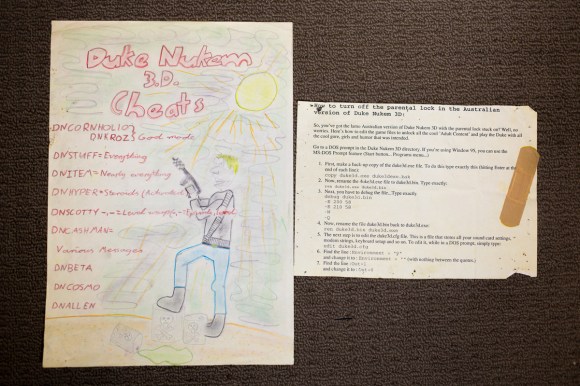 Duke Nukem
3.D.
Cheats
DNCORNHOLIO
DNKROZ
God mode
DNSTUFF=Everything
DNITEM=Nearly everything
DNHYPER=Steroids
DNSCOTTY
DNCASHMAN=
Various Messages
DNBETA
DNCOSMO
DNALLEN
How to turn off the parental lock in the Australian
version of Duke Nukem 3D:
So, you've got the lame Australian version of Duke Nukem 3D with the parental lock stuck on? Well, no
worries. Here's how to edit the game files to unlock all the cool 'Adult Content' and play the Duke with all
the cool gore, girls and humor that was intended.
Go to a DOS prompt in the Duke Nukem 3D directory. If you're using Window 95, you can use the
MS-DOS Prompt feature (Start button... Programs menu...)
1. First, make a back up copy of the duke3d.exe file. To do this type exactly this (hitting Enter at the
end of each line):
copy duke3d.exe
2. Now, rename the duke3d.exe file to duke3d.bin. Type exactly:
ren duke3d.exe duke3d.bin
3. Next, you have to debug the file...Type exactly:
debug duke3d.bin
-W
-Q
4. Now, rename the file duke3d.bin back to duke3d.exe:
ren duke3d.bin duke3d.exe
5. The next step is to edit the duke3d.cfg file. This is a file that stores all your sound card settings,
modem strings, keyboard setup and so on. To edit it, while in a DOS prompt, simply type:
edit duke3d.cfg
6. Find the line
and change it to: (with nothing between the quotes.)
7. Find the line
and change it to: